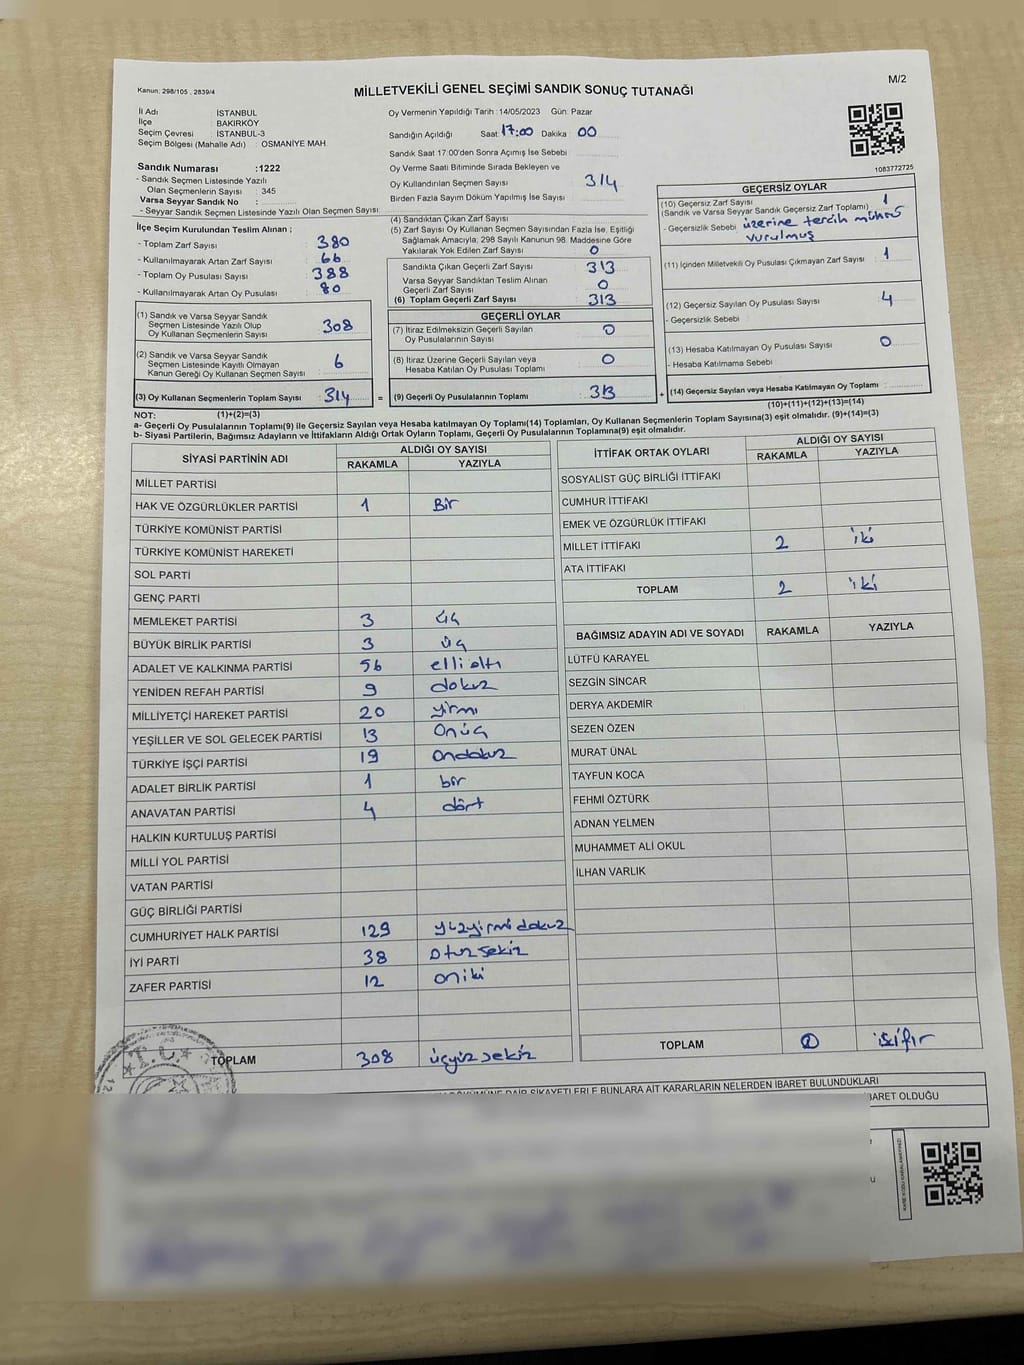 Kanun: 298/105 , 2839/4
MİLLETVEKİLİ GENEL SEÇİMİ SANDIK SONUÇ TUTANAĞI
M/2
İl Adı İSTANBUL
İlçe BAKIRKÖY
Seçim Çevresi : İSTANBUL-3
Seçim Bölgesi (Mahalle Adı) : OSMANİYE MAH.
Sandık Numarası :1222
- Sandık Seçmen Listesinde Yazılı
Olan Seçmenlerin Sayısı : 345
Varsa Seyyar Sandık No :
- Seyyar Sandık Seçmen Listesinde Yazılı Olan Seçmen Sayısı:
Oy Vermenin Yapıldığı Tarih : 14/05/2023 Gün: Pazar
Sandığın Açıldığı Saat: 17:00 Dakika : 00
Sandık Saat 17:00'den Sonra Açımış İse Sebebi
Oy Verme Saati Bitiminde Sırada Bekleyen ve
Oy Kullandırılan Seçmen Sayısı 314
Birden Fazla Sayım Döküm Yapılmış İse Sayısı
1083772725
İlçe Seçim Kurulundan Teslim Alınan ;
- Toplam Zarf Sayısı : 380
- Kullanılmayarak Artan Zarf Sayısı : 66
- Toplam Oy Pusulası Sayısı : 388
- Kullanılmayarak Artan Oy Pusulası : 80
(1) Sandık ve Varsa Seyyar Sandık
Seçmen Listesinde Yazılı Olup
Oy Kullanan Seçmenlerin Sayısı : 308
(2) Sandık ve Varsa Seyyar Sandık
Seçmen Listesinde Kayıtlı Olmayan
Kanun Gereği Oy Kullanan Seçmen Sayısı : 6
(3) Oy Kullanan Seçmenlerin Toplam Sayısı : 314 =
(4) Sandıktan Çıkan Zarf Sayısı
(5) Zarf Sayısı Oy Kullanan Seçmen Sayısından Fazla İse, Eşitliği
Sağlamak Amacıyla, 298 Sayılı Kanunun 98. Maddesine Göre
Yakılarak Yok Edilen Zarf Sayısı : 0
Sandıkta Çıkan Geçerli Zarf Sayısı : 313
Varsa Seyyar Sandıktan Teslim Alınan
Geçerli Zarf Sayısı : 0
(6) Toplam Geçerli Zarf Sayısı : 313
GEÇERLİ OYLAR
(7) İtiraz Edilmeksizin Geçerli Sayılan
Oy Pusulalarının Sayısı : 0
(8) İtiraz Üzerine Geçerli Sayılan veya
Hesaba Katılan Oy Pusulası Toplamı : 0
(9) Geçerli Oy Pusulalarının Toplamı : 313 +
GEÇERSİZ OYLAR
(10) Geçersiz Zarf Sayısı
(Sandık ve Varsa Seyyar Sandık Geçersiz Zarf Toplamı) : 1
- Geçersizlik Sebebi : üzerine tercih mührü
vurulmuş
(11) İçinden Milletvekili Oy Pusulası Çıkmayan Zarf Sayısı : 1
(12) Geçersiz Sayılan Oy Pusulası Sayısı : 4
- Geçersizlik Sebebi :
(13) Hesaba Katılmayan Oy Pusulası Sayısı : 0
- Hesaba Katılmama Sebebi :
(14) Geçersiz Sayılan veya Hesaba Katılmayan Oy Toplamı :
(10)+(11)+(12)+(13)=(14)
NOT: (1)+(2)=(3)
a- Geçerli Oy Pusulalarının Toplamı(9) ile Geçersiz Sayılan veya Hesaba katılmayan Oy Toplamı(14) Toplamları, Oy Kullanan Seçmenlerin Toplam Sayısına(3) eşit olmalıdır. (9)+(14)=(3)
b- Siyasi Partilerin, Bağımsız Adayların ve İttifakların Aldığı Ortak Oyların Toplamı, Geçerli Oy Pusulalarının Toplamına(9) eşit olmalıdır.
SİYASİ PARTİNİN ADI ALDIĞI OY SAYISI
RAKAMLA YAZIYLA
MİLLET PARTİSİ
HAK VE ÖZGÜRLÜKLER PARTİSİ 1 Bir
TÜRKİYE KOMÜNİST PARTİSİ
TÜRKİYE KOMÜNİST HAREKETİ
SOL PARTİ
GENÇ PARTİ
MEMLEKET PARTİSİ 3 üç
BÜYÜK BİRLİK PARTİSİ 3 üç
ADALET VE KALKINMA PARTİSİ 56 elli altı
YENİDEN REFAH PARTİSİ 9 dokuz
MİLLİYETÇİ HAREKET PARTİSİ 20 yirmi
YEŞİLLER VE SOL GELECEK PARTİSİ 13 Onüç
TÜRKİYE İŞÇİ PARTİSİ 19 Ondokuz
ADALET BİRLİK PARTİSİ 1 bir
ANAVATAN PARTİSİ 4 dört
HALKIN KURTULUŞ PARTİSİ
MİLLİ YOL PARTİSİ
VATAN PARTİSİ
GÜÇ BİRLİĞİ PARTİSİ
CUMHURİYET HALK PARTİSİ 129 yüzyirmi dokuz
İYİ PARTİ 38 otuz sekiz
ZAFER PARTİSİ 12 oniki
TOPLAM 308 üçyüz sekiz
İTTİFAK ORTAK OYLARI ALDIĞI OY SAYISI
RAKAMLA YAZIYLA
SOSYALİST GÜÇ BİRLİĞİ İTTİFAKI
CUMHUR İTTİFAKI
EMEK VE ÖZGÜRLÜK İTTİFAKI
MİLLET İTTİFAKI 2 iki
ATA İTTİFAKI
TOPLAM 2 iki
BAĞIMSIZ ADAYIN ADI VE SOYADI RAKAMLA YAZIYLA
LÜTFÜ KARAYEL
SEZGİN SİNCAR
DERYA AKDEMİR
SEZEN ÖZEN
MURAT ÜNAL
TAYFUN KOCA
FEHMİ ÖZTÜRK
ADNAN YELMEN
MUHAMMET ALİ OKUL
İLHAN VARLIK
TOPLAM
T.C.
DÖKÜMÜNE DAİR ŞİKAYETLERLE BUNLARA AİT KARARLARIN NELERDEN İBARET BULUNDUKLARI
BARET OLDUĞU